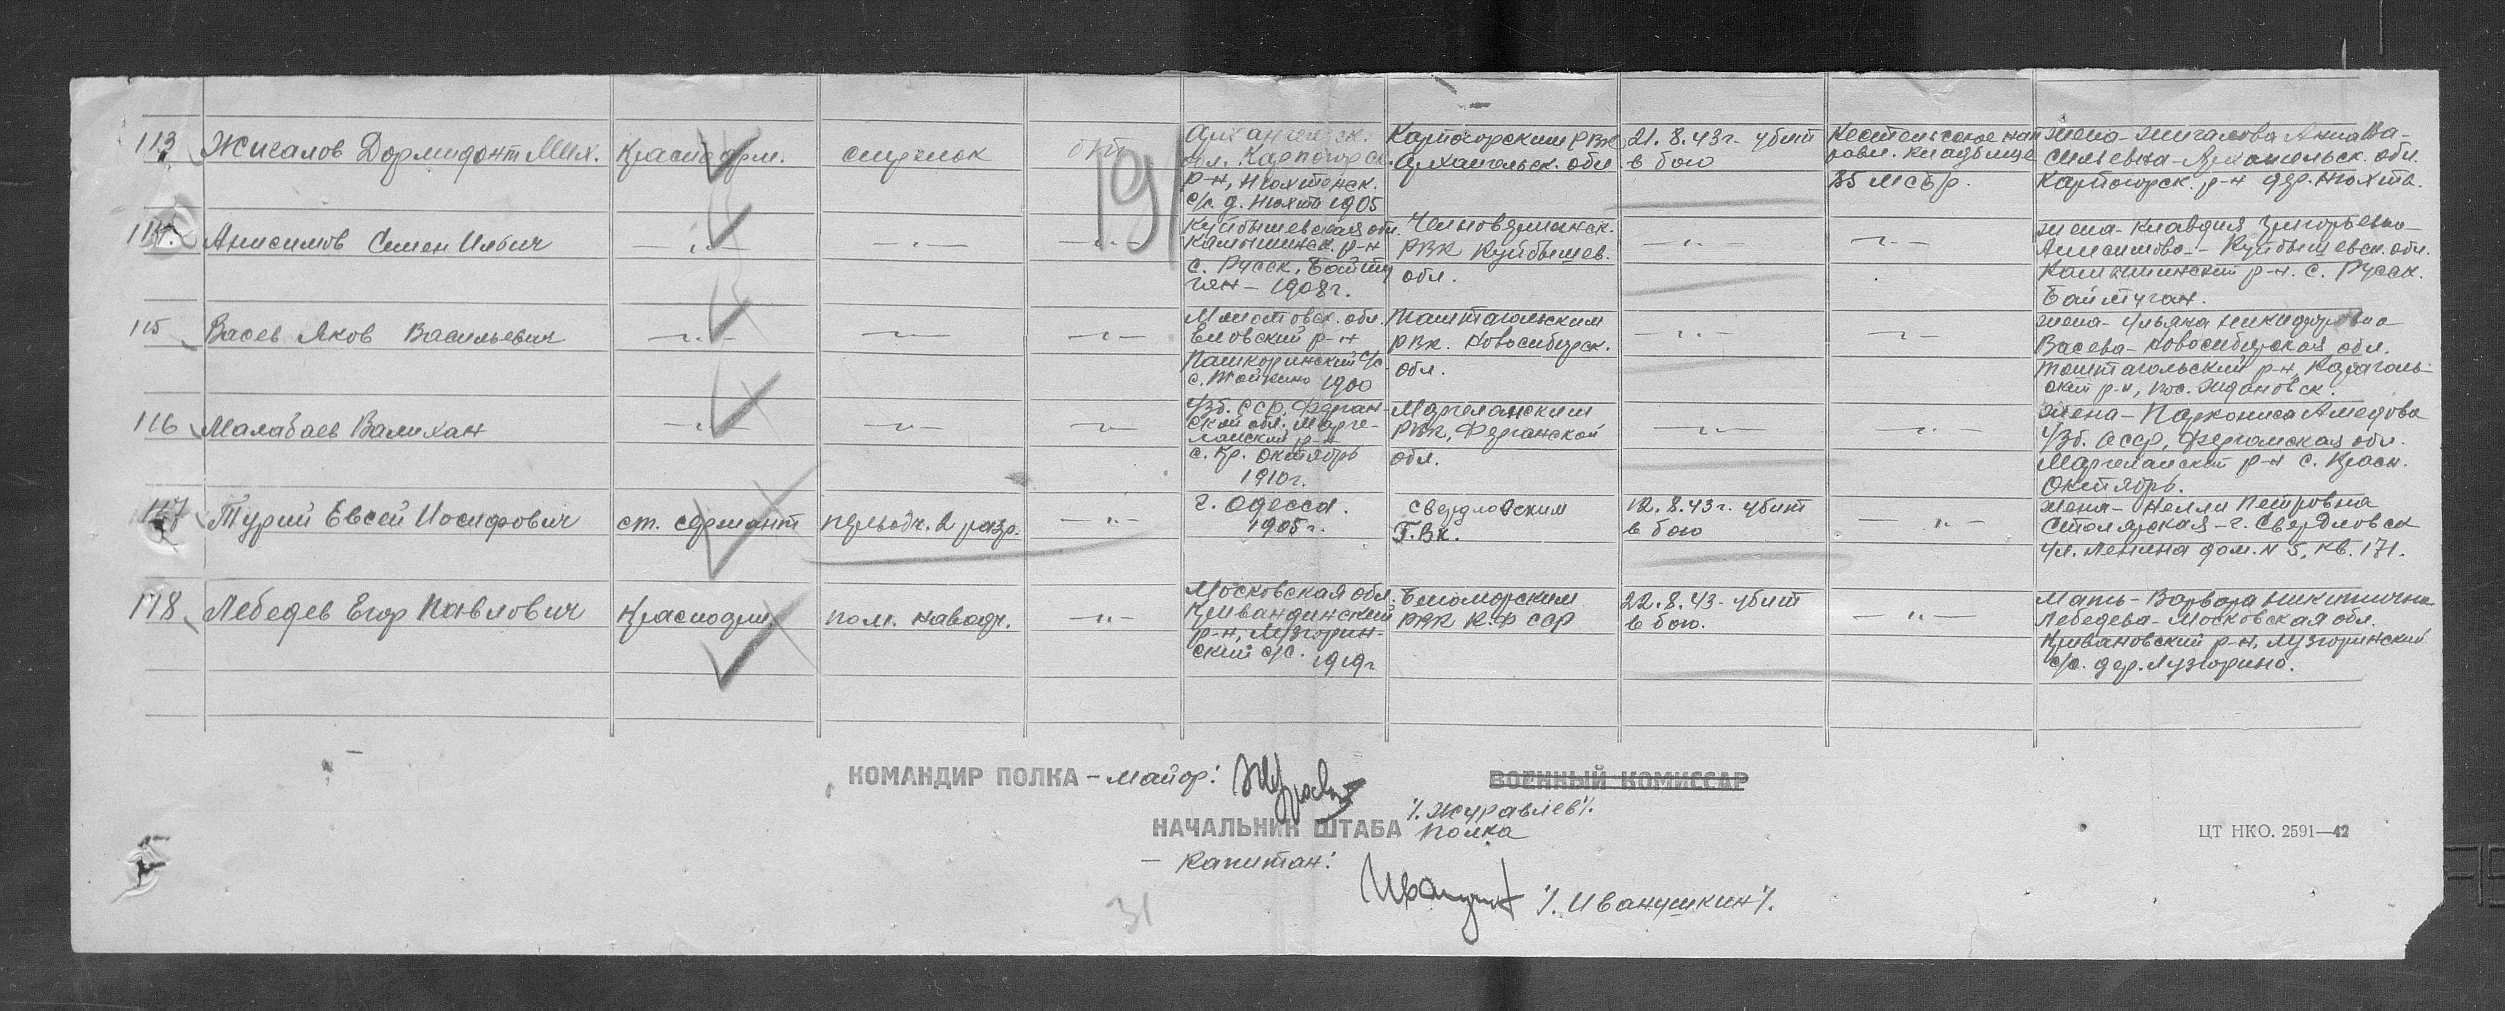 113 Жигалов Дормидонт Мих. Красноарм. стрелок б/п
Архангельск.
обл. Карпогорск.
р-н, Нюхтенск.
с/с. д. Нюхта 1905
Карпогорским РВК
Архангельск. обл.
21.8.43г. убит
в бою
Кестеньгское нап
равл. кладбище
85 МСБр.
жена - Жигалова Анна Ва-
сильевна - Архангельск. обл.
Карпогорск. р-н дер. Нюхта.
191
114 Анисимов Семен Ильич —"— —"— —"—
Куйбышевская обл.
Камышинск. р-н
с. Русск. Байту
ган - 1908г.
Челновершинск.
РВК Куйбышев.
обл.
—"— —"—
жена - Клавдия Григорьевна
Анисимова - Куйбышевск. обл.
Камышинский р-н. с. Русск.
Байтуган.
115 Васев Яков Васильевич —"— —"— —"—
Молотовск. обл.
Еловский р-н
с. Тойкино 1900
Таштагольским
РВК. Новосибирск.
обл.
—"— —"—
жена - Ульяна Никифоровна
Васева - Новосибирская обл.
Таштагольский р-н,
пос. Ждановск.
116 Малабаев Валихан —"— —"— —"—
Узб. ССР, Ферган-
ской обл. Марге-
ланский р-н
с. Кр. Октябрь
1910г.
Маргеланским
РВК, Ферганской
обл.
—"— —"—
жена - Паркониса Амедова
Узб. ССР, Ферганская обл.
Маргеланский р-н с. Красн.
Октябрь.
117 Турий Евсей Иосифович ст. сержант —"—
г. Одесса.
1905г.
Свердловским
Г.В.К.
12.8.43г. убит
в бою
—"—
жена - Нелли Петровна
Столярская - г. Свердловск
ул. Ленина дом. N 5, кв. 171.
118 Лебедев Егор Павлович Красноарм. пом. наводч. —"—
Московская обл.
Кривандинский
р-н, Лузгорин-
ский с/с. 1919г
Беломорским
РВК К.Ф ССР
22.8.43 - убит
в бою.
—"—
Мать - Варвара Никитична
Лебедева - Московская обл.
Кривановский р-н, Лузгоринский
с/с. дер. Лузгорино.
КОМАНДИР ПОЛКА - майор:
ВОЕННЫЙ КОМИССАР
/. Журавлев /.
НАЧАЛЬНИК ШТАБА полка
- капитан:
/. Иванушкин /.
ЦТ НКО. 2591—42
31